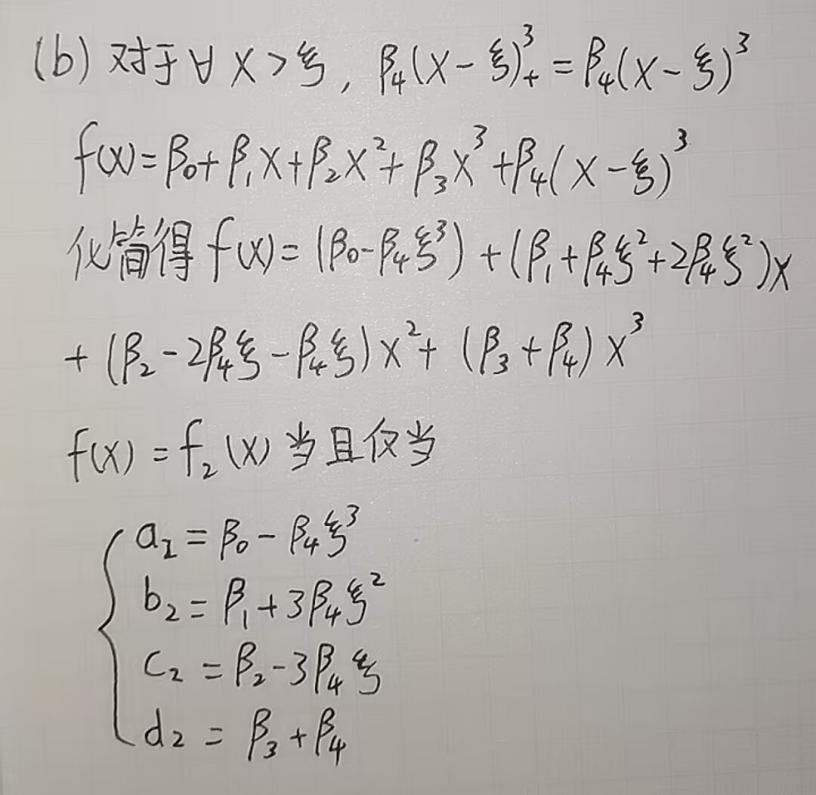 (b) 对于∀ x>ξ, β₄(x-ξ)³₊ = β₄(x-ξ)³
f(x)=β₀+β₁x+β₂x²+β₃x³+β₄(x-ξ)³
化简得 f(x)= (β₀-β₄ξ³) + (β₁+β₄ξ²+2β₄ξ²)x
+ (β₂-2β₄ξ-β₄ξ)x²+ (β₃+β₄)x³
f(x) = f₂(x) 当且仅当
a₂ = β₀ - β₄ξ³
b₂ = β₁+3β₄ξ²
c₂ = β₂-3β₄ξ
d₂ = β₃+β₄